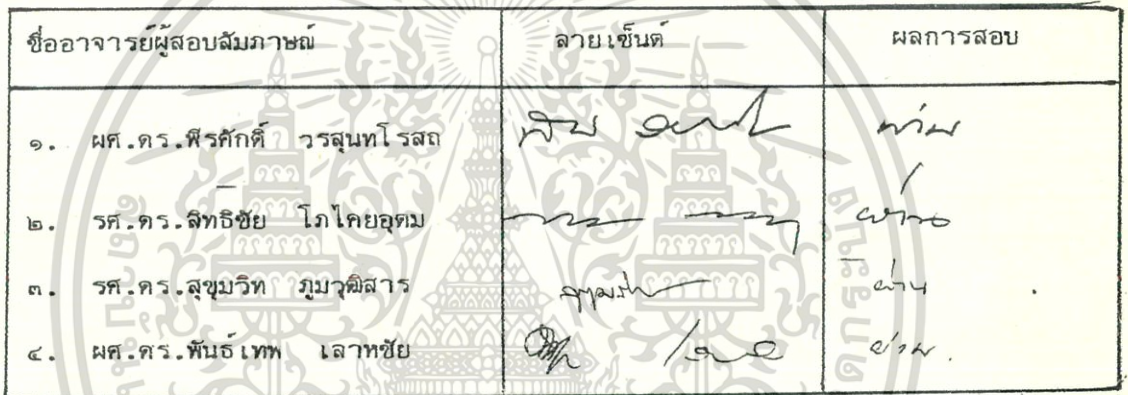 ชื่ออาจารย์ผู้สอบสัมภาษณ์ ลายเซ็นต์ ผลการสอบ
๑. ผศ.ดร.พีรศักดิ์ วรสุนทโรสถ ผ่าน
๒. รศ.ดร.สิทธิชัย โภไคยอุดม ผ่าน
๓. รศ.ดร.สุขุมวิท ภูมวุฒิสาร ผ่าน
๔. ผศ.ดร.พันธ์เทพ เลาหชัย ผ่าน